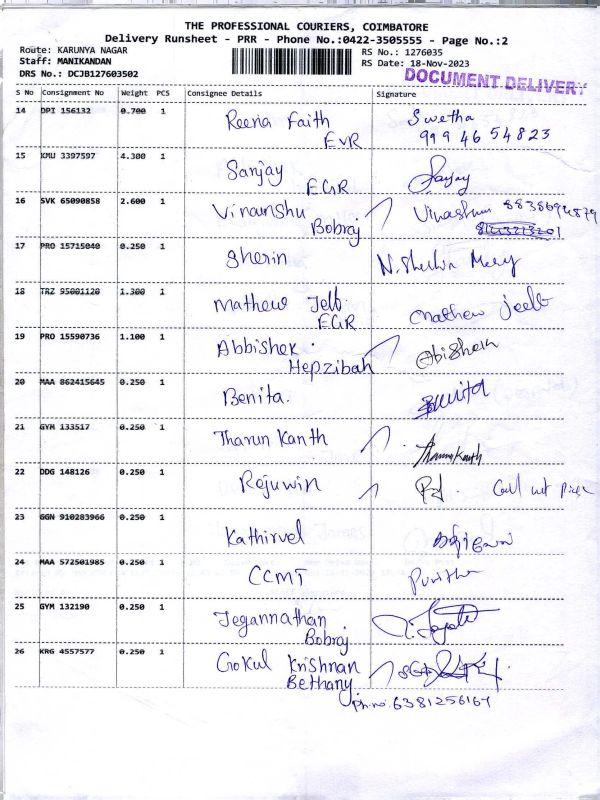 THE PROFESSIONAL COURIERS, COIMBATORE
Delivery Runsheet - PRR - Phone No.:0422-3505555 - Page No.:2
Route: KARUNYA NAGAR RS No.: 1276035
Staff: MANIKANDAN RS Date: 18-Nov-2023
DRS No.: DCJB127603502 DOCUMENT DELIVERY
S No Consignment No Weight PCS Consignee Details Signature
14 DPI 156132 0.700 1 Reena Faith Swetha
EVR 99946 54823
15 KMU 3397597 4.300 1 Sanjay Sanjay
EGR
16 SVK 65090858 2.600 1 Vinamshu
Bobraj
17 PRO 15715040 0.250 1 Sherin N. Sherlin Mercy
18 TRZ 95001120 1.300 1 Mathew Jebb
EGR
19 PRO 15590736 1.100 1 Abbishek Abishek
Hepzibah
20 MAA 862415645 0.250 1 Benita. Benita
21 GYM 133517 0.250 1 Tharun Kanth Tharun Kanth
22 DDG 148126 0.250 1 Rejuwin
23 GGN 910283966 0.250 1 Kathirvel
24 MAA 572501985 0.250 1 CCMT
25 GYM 132190 0.250 1 Jegannathan
Bobraj
26 KRG 4557577 0.250 1 Gokul Krishnan
Bethany
Ph.no: 6381256167